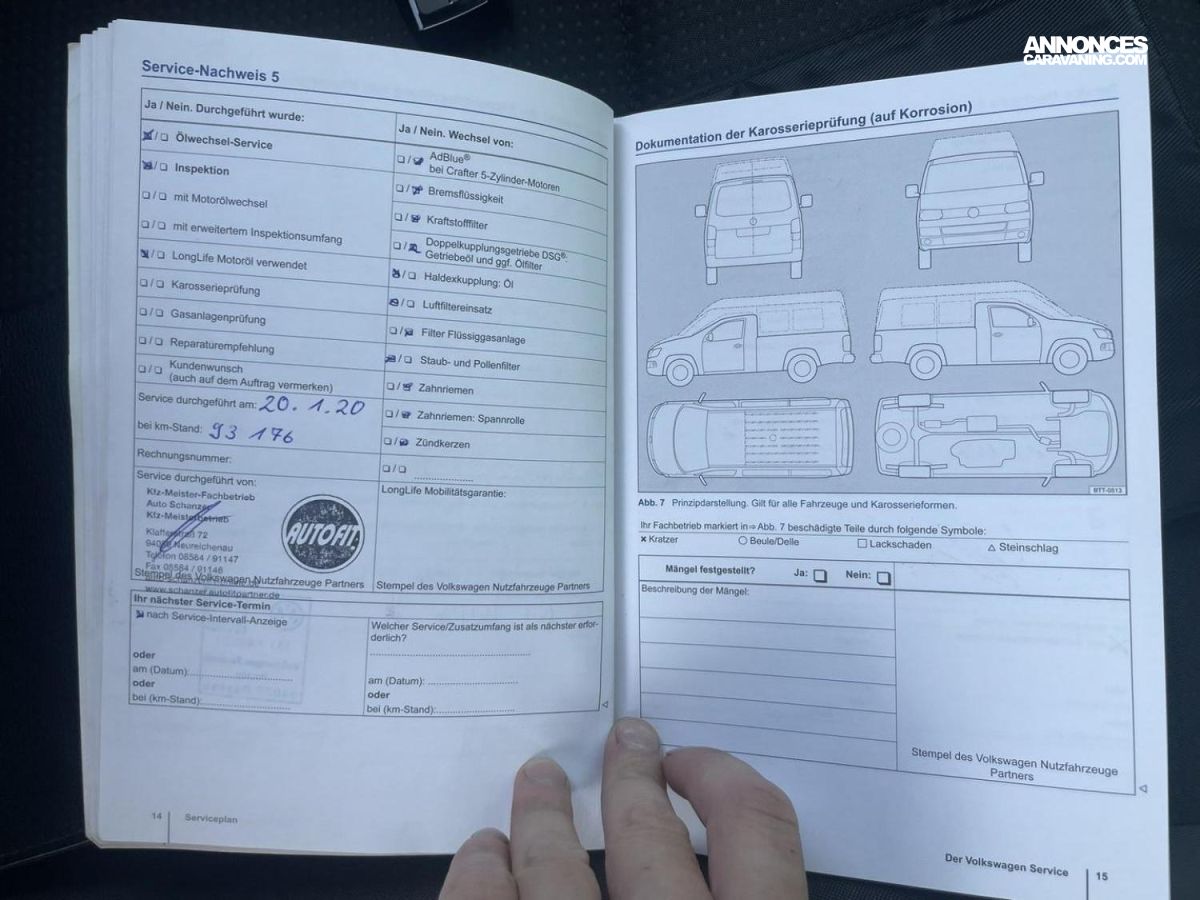 ANNONCES
CARAVANING.COM
Service-Nachweis 5
Ja / Nein. Durchgeführt wurde:
❏/❏ Ölwechsel-Service
❏/❏ Inspektion
❏/❏ mit Motorölwechsel
❏/❏ mit erweitertem Inspektionsumfang
❏/❏ LongLife Motoröl verwendet
❏/❏ Karosserieprüfung
❏/❏ Gasanlagenprüfung
❏/❏ Reparaturempfehlung
❏/❏ Kundenwunsch
(auch auf dem Auftrag vermerken)
Service durchgeführt am: 20.1.20
bei km-Stand: 93 176
Rechnungsnummer:
Service durchgeführt von:
Kfz-Meister-Fachbetrieb
Auto Schanzer
Kfz-Meisterbetrieb
72
Neureichenau
Telefon 08584 / 91147
Fax 08584 / 91148
AUTOFIT
Stempel des Volkswagen Nutzfahrzeuge Partners
www.schanzer.autofitpartner.de
Ja / Nein. Wechsel von:
❏/❏ AdBlue®
bei Crafter 5-Zylinder-Motoren
❏/❏ Bremsflüssigkeit
❏/❏ Kraftstofffilter
❏/❏ Doppelkupplungsgetriebe DSG®:
Getriebeöl und ggf. Ölfilter
❏/❏ Haldexkupplung: Öl
❏/❏ Luftfiltereinsatz
❏/❏ Filter Flüssiggasanlage
❏/❏ Staub- und Pollenfilter
❏/❏ Zahnriemen
❏/❏ Zahnriemen: Spannrolle
❏/❏ Zündkerzen
❏/❏
LongLife Mobilitätsgarantie:
Stempel des Volkswagen Nutzfahrzeuge Partners
Ihr nächster Service-Termin
nach Service-Intervall-Anzeige
oder
am (Datum):
oder
bei (km-Stand):
Welcher Service/Zusatzumfang ist als nächster erfor-
derlich?
am (Datum):
oder
bei (km-Stand):
14 Serviceplan
Dokumentation der Karosserieprüfung (auf Korrosion)
BTT-0513
Abb. 7 Prinzipdarstellung. Gilt für alle Fahrzeuge und Karosserieformen.
Ihr Fachbetrieb markiert in ⇒ Abb. 7 beschädigte Teile durch folgende Symbole:
× Kratzer ○ Beule/Delle □ Lackschaden △ Steinschlag
Mängel festgestellt? Ja: ❏ Nein: ❏
Beschreibung der Mängel:
Stempel des Volkswagen Nutzfahrzeuge
Partners
Der Volkswagen Service 15